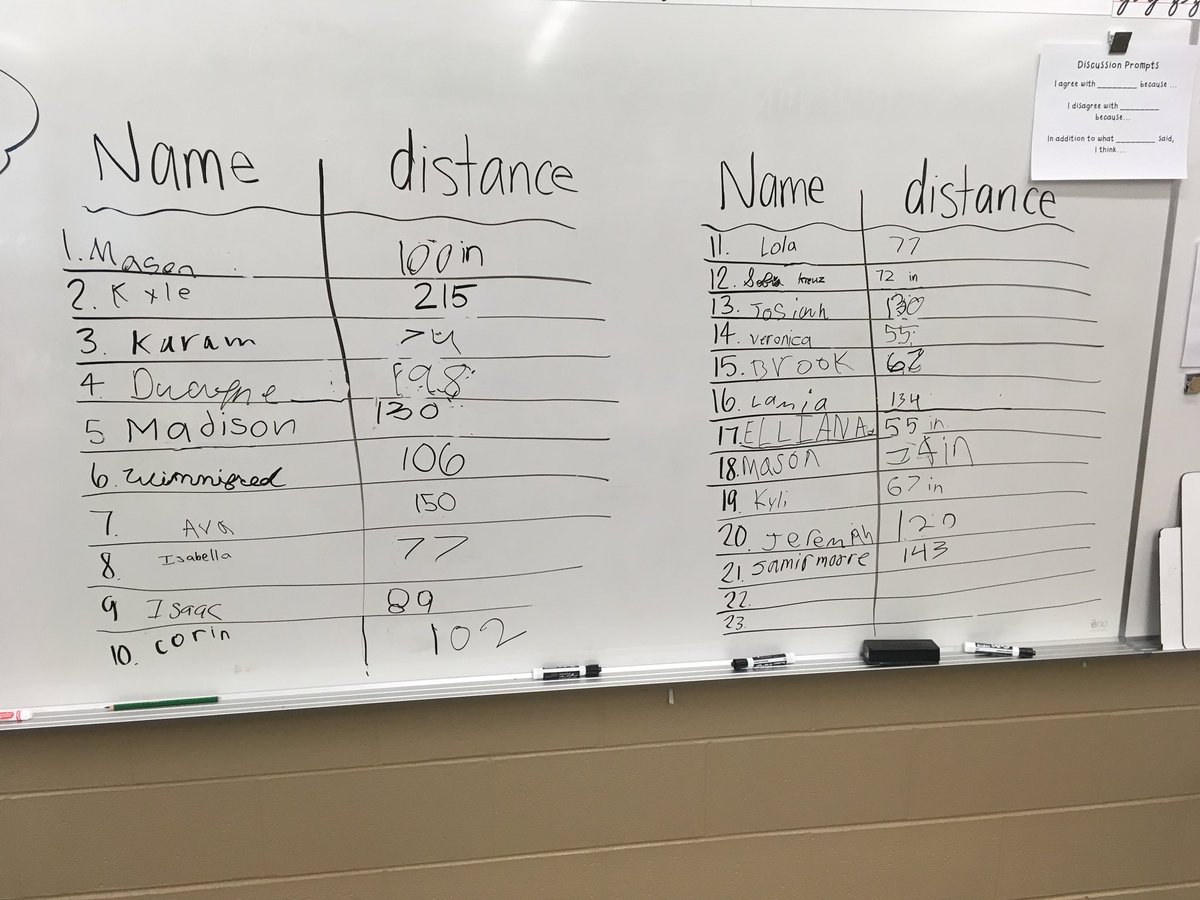 Name distance
1. Mason 100 in
2. Kyle 215
3. Karam 74
4. Duayne 198
5 Madison 130
6. 106
7. Ava 150
8. Isabella 77
9 Isaac 89
10. Corin 102
Name distance
11. Lola 77
12. kreuz 72 in
13. Josiah 130
14. veronica 55
15. Brook 62
16. Lania 134
17. ELLIANA 55 in.
18. Mason 54 in
19. Kyli 67 in
20. Jeremiah 120
21. Samir moore 143
22.
23.
Discussion Prompts
I agree with ________ because ...
I disagree with ________
because...
In addition to what ________ said,
I think....
eno